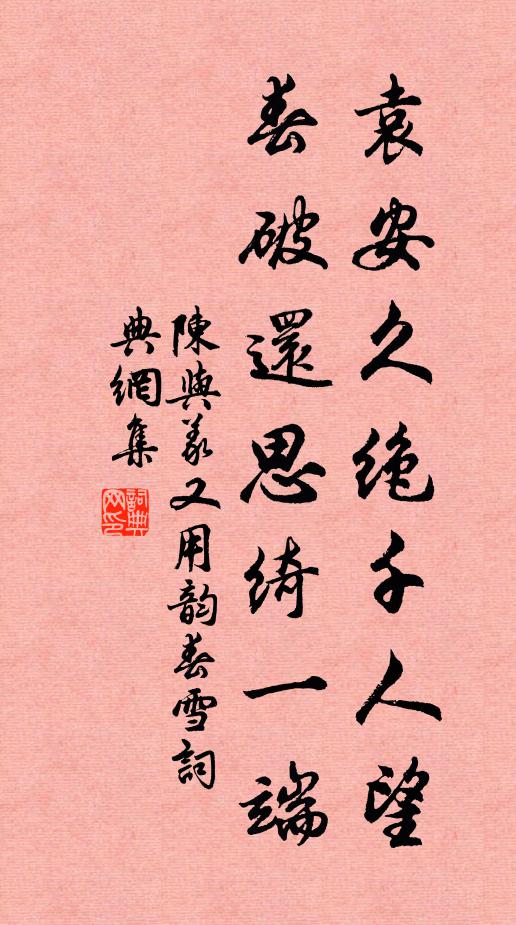 袁安久绝千人望
春破還思绮一端
陳與義又用韵春雪詞
典網集
詞典网印